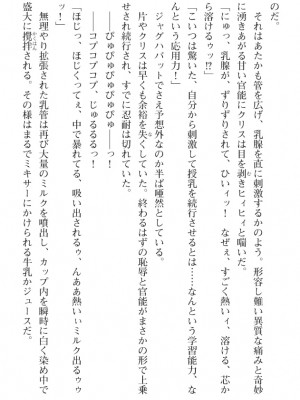 のだ。
　それはあたかも管を広げ、乳腺を直に刺激するかのよう。形容し難い異質な痛みと奇妙
に湧きあがる甘い官能にクリスは目を剥きヒィヒィと喘いだ。
「にゅっ、乳腺が、ずりずりされて、ひぃィッ！　なぜぇ、すごく熱いィ、溶ける、芯か
ら溶けるゥッ!?」
「こいつは驚いた、自分から刺激して授乳を続行させるとは……なんという学習能力、な
んという応用力！」
　ジャグハバットでさえ予想外なのか半ば唖然としている。
　片やクリスは早くも余裕を失くしていた。終わるはずの恥辱と官能がまさかの形で上乗
せされ続行され、すでに忍耐は切れていた。
――びゅびゅびゅびゅびゅ――っ！
――コプコプコプ、じゅるるるっ！
「ほじっ、ほじくつてぇ、中で暴れてる、吸い出されるゥ、んああ熱いぃミルク出るゥゥ
ッ！」
　無理やり拡張された乳管は再び大量のミルクを噴出し、カップ内を瞬時に白く染め中で
盛大に攪拌される。その様はまるでミキサーにかけられる牛乳かジュースだ。